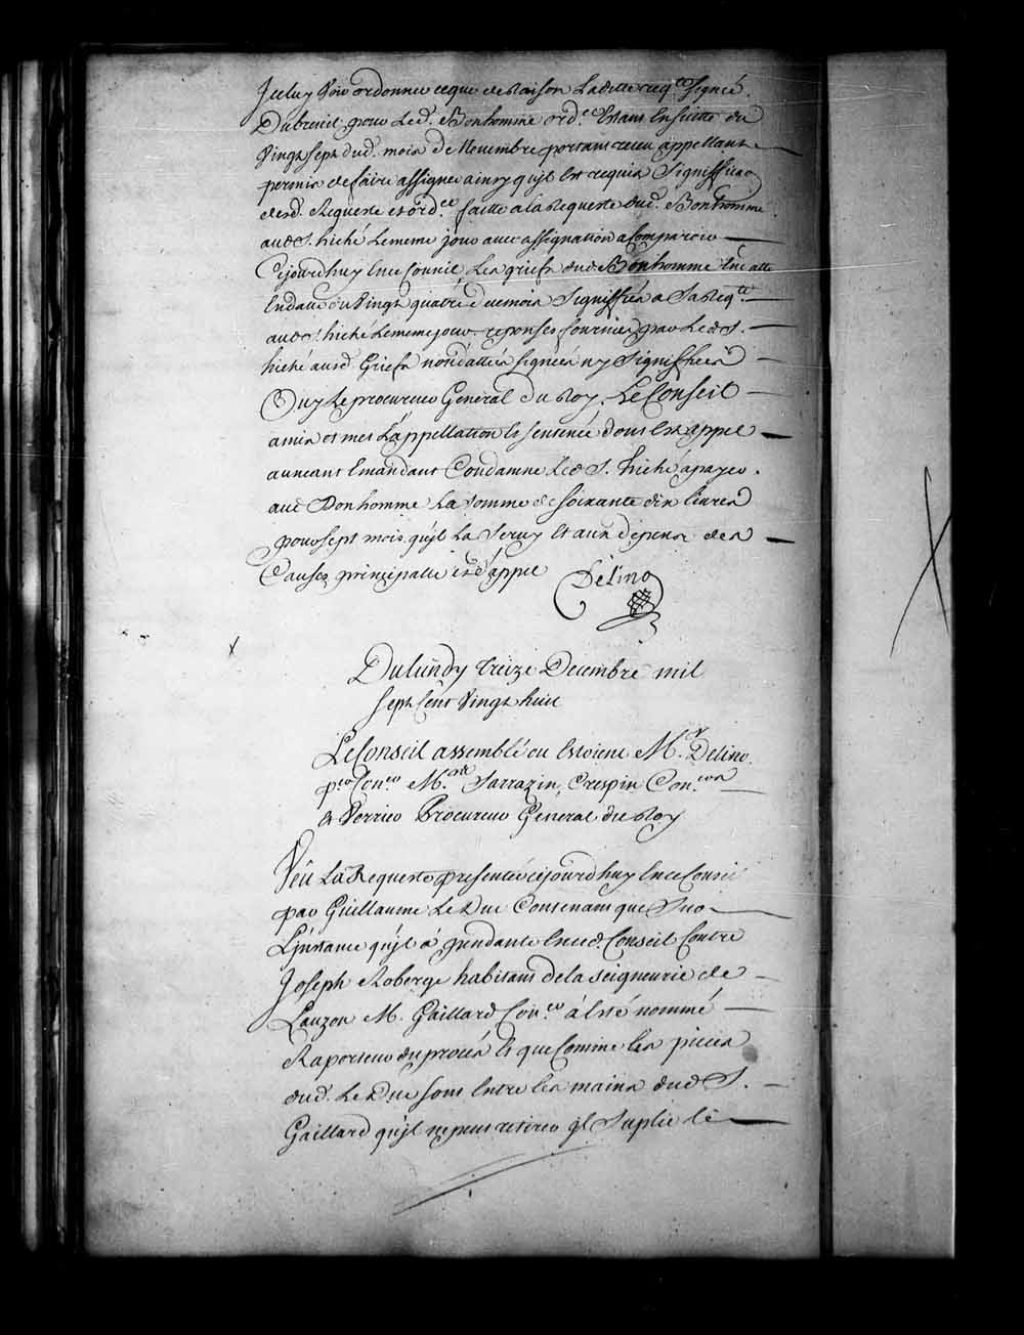 Jceluy Voir ordonner ceque de Raison Ladette req.te Signée
Dubreuil pour Led. Bonhomme ord.ce Estant Ensuitte du
Vingt sept dud. mois de Novembre portant receu appellant
permis de faire assigner ainsy qu'jl Est requis Signiffica͠o͠n
desd. Requeste et ord.ce faitte a la Requeste dud. Bonhomme
aud S. hiché Lememe jour avec assignation a Comparoir
Cejourdhuy En ce Conseil Les griefs dud Bonhomme En datte
du Vingt quatre de ce mois Signiffiés a Sa Req.te
aud S. hiché Lememe jour reponses fournies par Led S.
hiché ausd. Griefs non dattées signées ny Signiffiées
Ouy Le procureur General Du Roy, Le Conseil
a mis et met L'appellation Et sentence dont Est appel
au neant Emandant Condamne Led S. hiché a payer
aud Bonhomme La somme de soixante dix livres
pour sept mois qu'jl La Servy Et aux dépens des
Causes principalle et d'appel
Delino
Du lundy treize Decembre mil
sept Cent Vingt huit
Le Conseil assemblé ou Estoient M.r Delino
p.er Con.er M.rs Sarrazin, Crespin Con.ers
Et Verrier Procureur General du Roy
Veu La Requeste presentée cejourd'huy En ce Conseil
par Guillaume Le Duc Contenant que Sur
L'jnstance qu'jl a pendante En ced. Conseil Contre
Joseph Roberge habitant de la seigneurie de
Lauzon M. Gaillard Con.er a Esté nommé
Raporteur du procès Et que Comme Les pieces
dud. Le Duc sont Entre Les mains dud S.
Gaillard qu'jl ne peut retirer jl Suplie Le